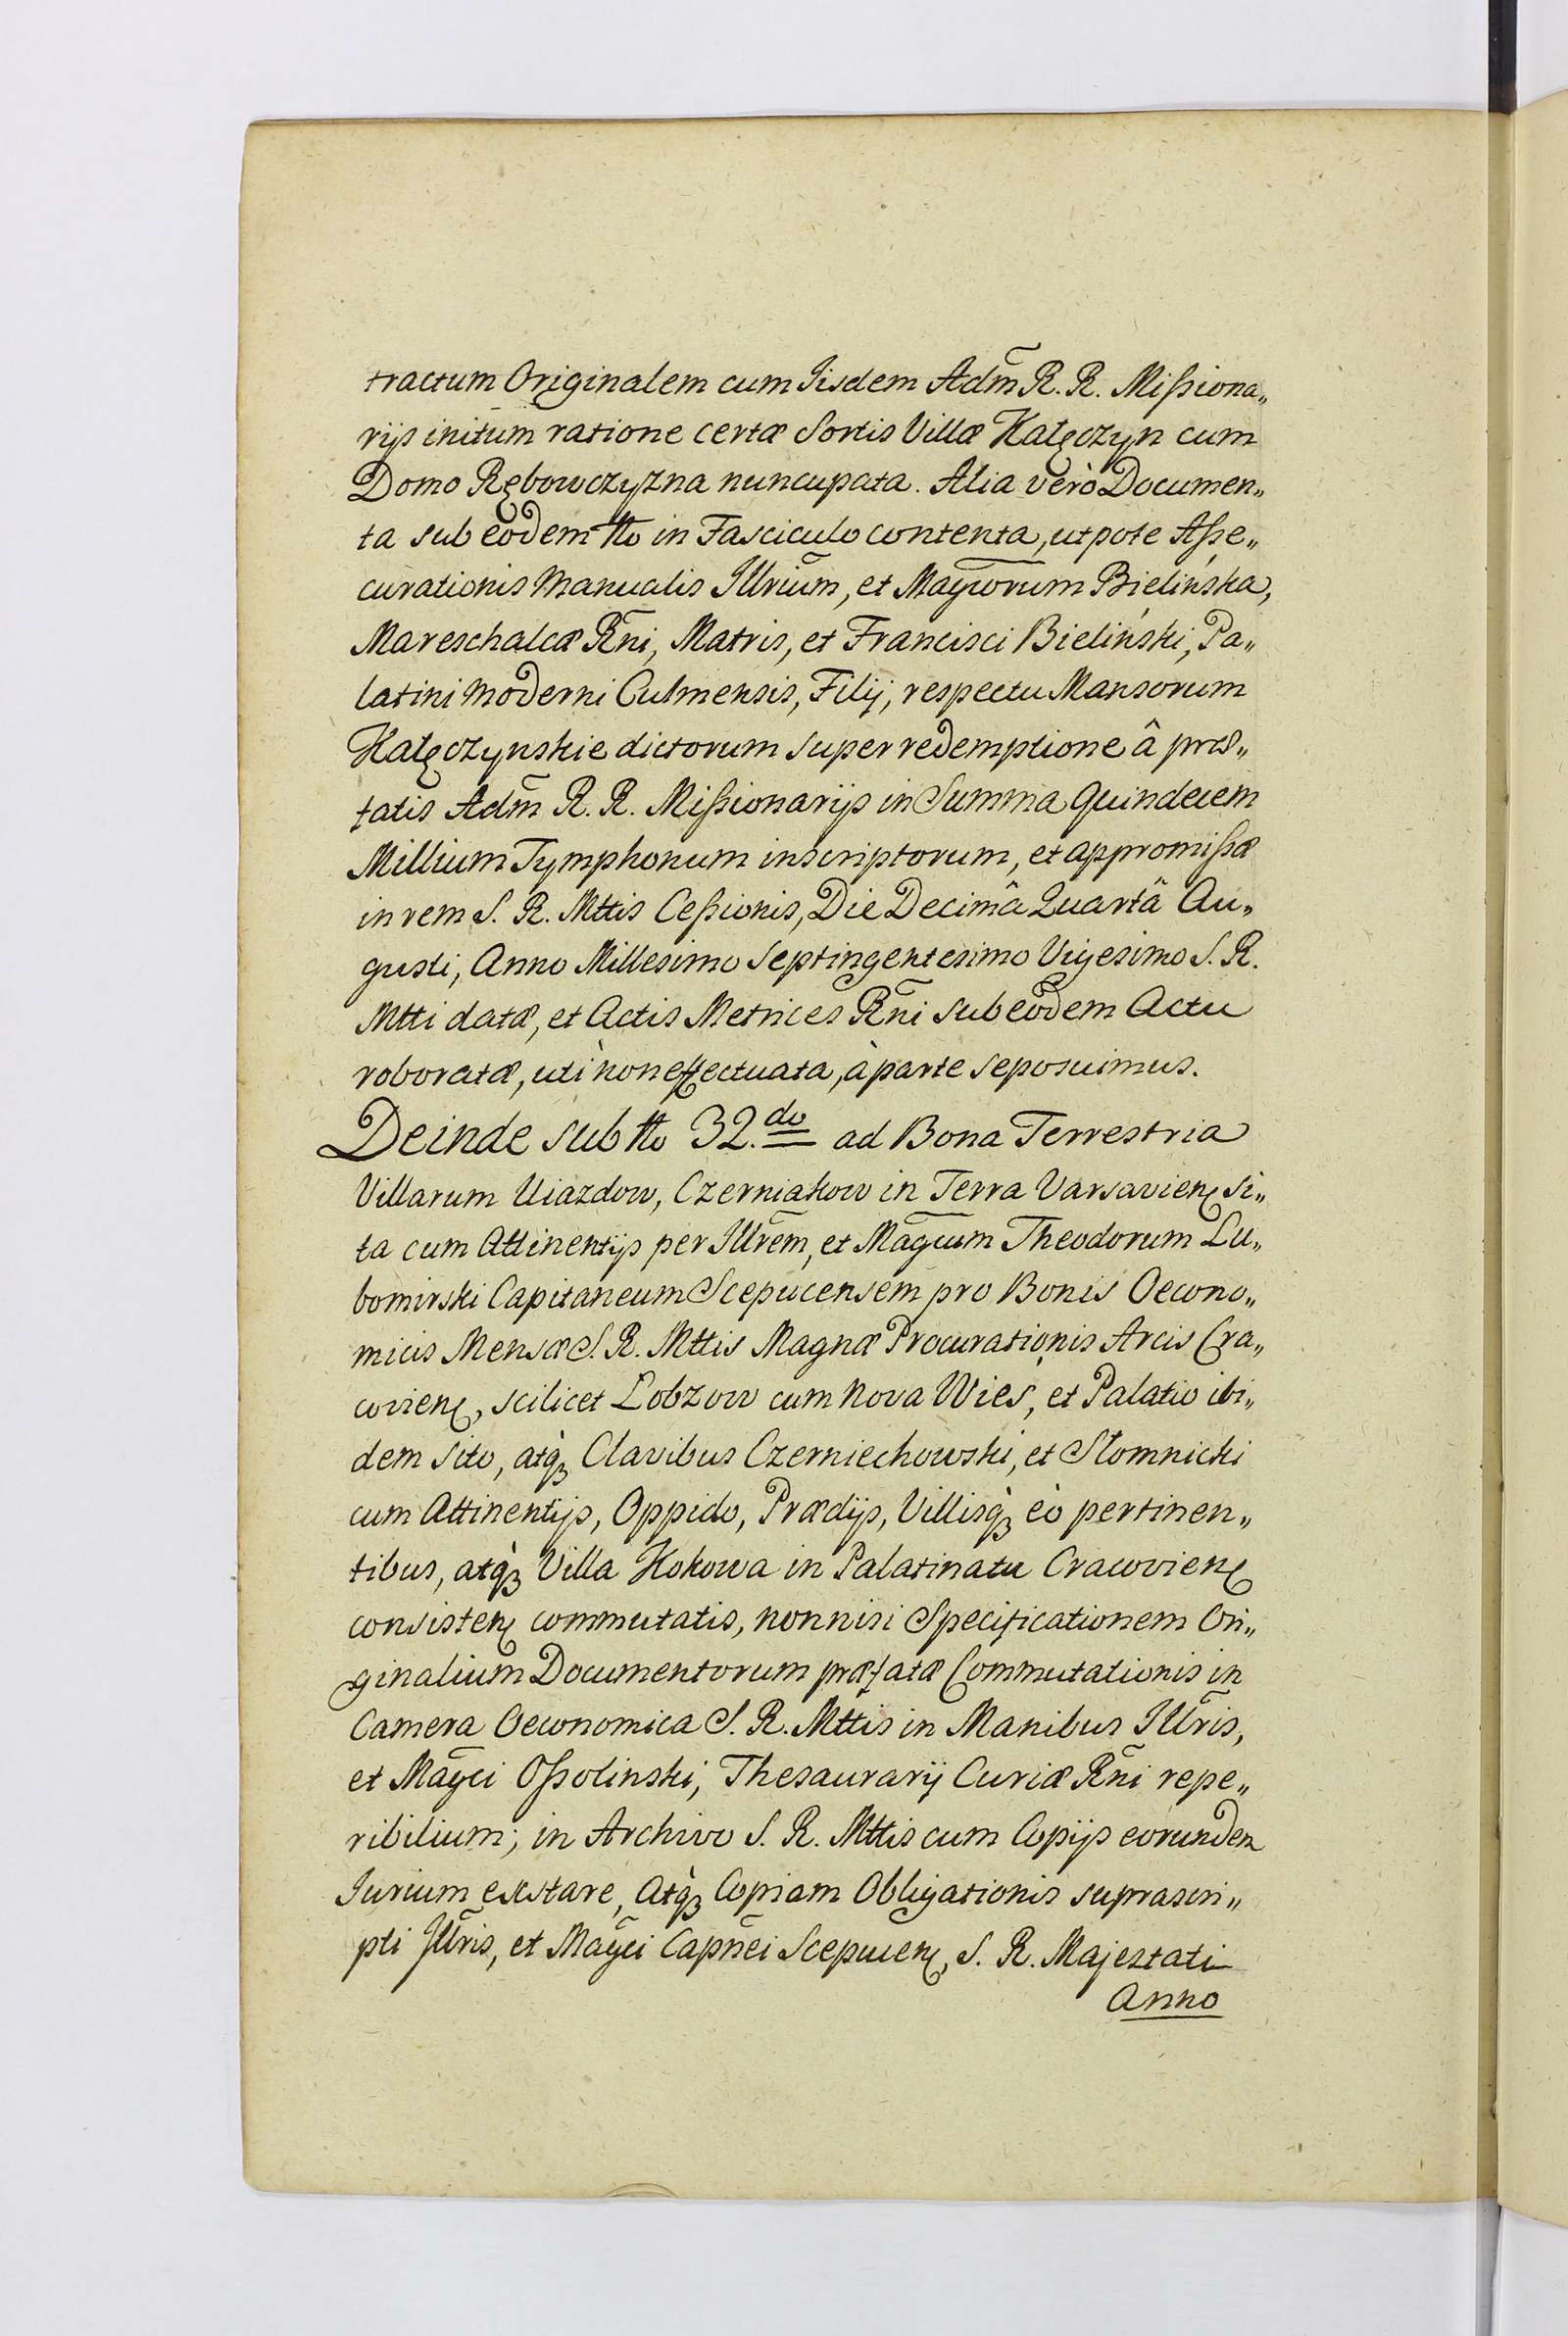 tractum Originalem cum Iisdem Adm̃ R. R. Missiona„
rijs initum ratione certæ Sortis Villæ Kałęczyn cum
Domo Rębowczyzna nuncupata. Alia verò Documen„
ta sub eodem No in Fasciculo contenta, utpote Asse„
curationis Manualis Illrium̃, et Magcorum Bielińska,
Mareschalcæ Rñi, Matris, et Francisci Bieliński, Pa„
latini moderni Culmensis, Filij, respectu Mansorum
Kałęczynskie dictorum super redemptione â præ„
fatis Adm̃ R. R. Missionarijs in Summa Quindecem
Millium Tymphonum inscriptorum, et appromissæ
in rem S. R. Mttis Cessionis, Die Decimâ Quartâ Au„
gusti, Anno Millesimo Septingentesimo Vigesimo S. R.
Mtti datæ, et Actis Metrices Rñi sub eodem Actu
roboratæ, uti non effectuata, à parte seposuimus.
Deinde sub No 32.do ad Bona Terrestria
Villarum Uiazdow, Czerniakow in Terra Varsavien si„
ta cum Attinentijs per Illrem̃, et Magcum Theodorum Lu„
bomirski Capitaneum Scepucensem pro Bonis Oecono„
micis Mensæ S. R. Mttis Magnæ Procurationis Arcis Cra„
covien, scilicet Łobzow cum Nova Wieś, et Palatio ibi„
dem sito, atq̀ꝫ Clavibus Czerniechowski, et Słomnicki
cum Attinentijs, Oppido, Prædijs, Villisq̀ꝫ eò pertinen„
tibus, atq̀ꝫ Villa Kokowa in Palatinatu Cracovien
consisten commutatis, nonnisi Specificationem Ori„
ginalium Documentorum præfatæ Commutationis in
Camera Oeconomica S. R. Mttis in Manibus Illris̃,
et Magci Ossolinski, Thesaurarij Curiæ Rñi repe„
ribilium; in Archivo S. R. Mttis cum Copijs eorundem
Iurium exstare, Atq̀ꝫ Copiam Obligationis suprascri„
pti Illris̃, et Magci Capñei Scepucen, S. R. Majestati
Anno